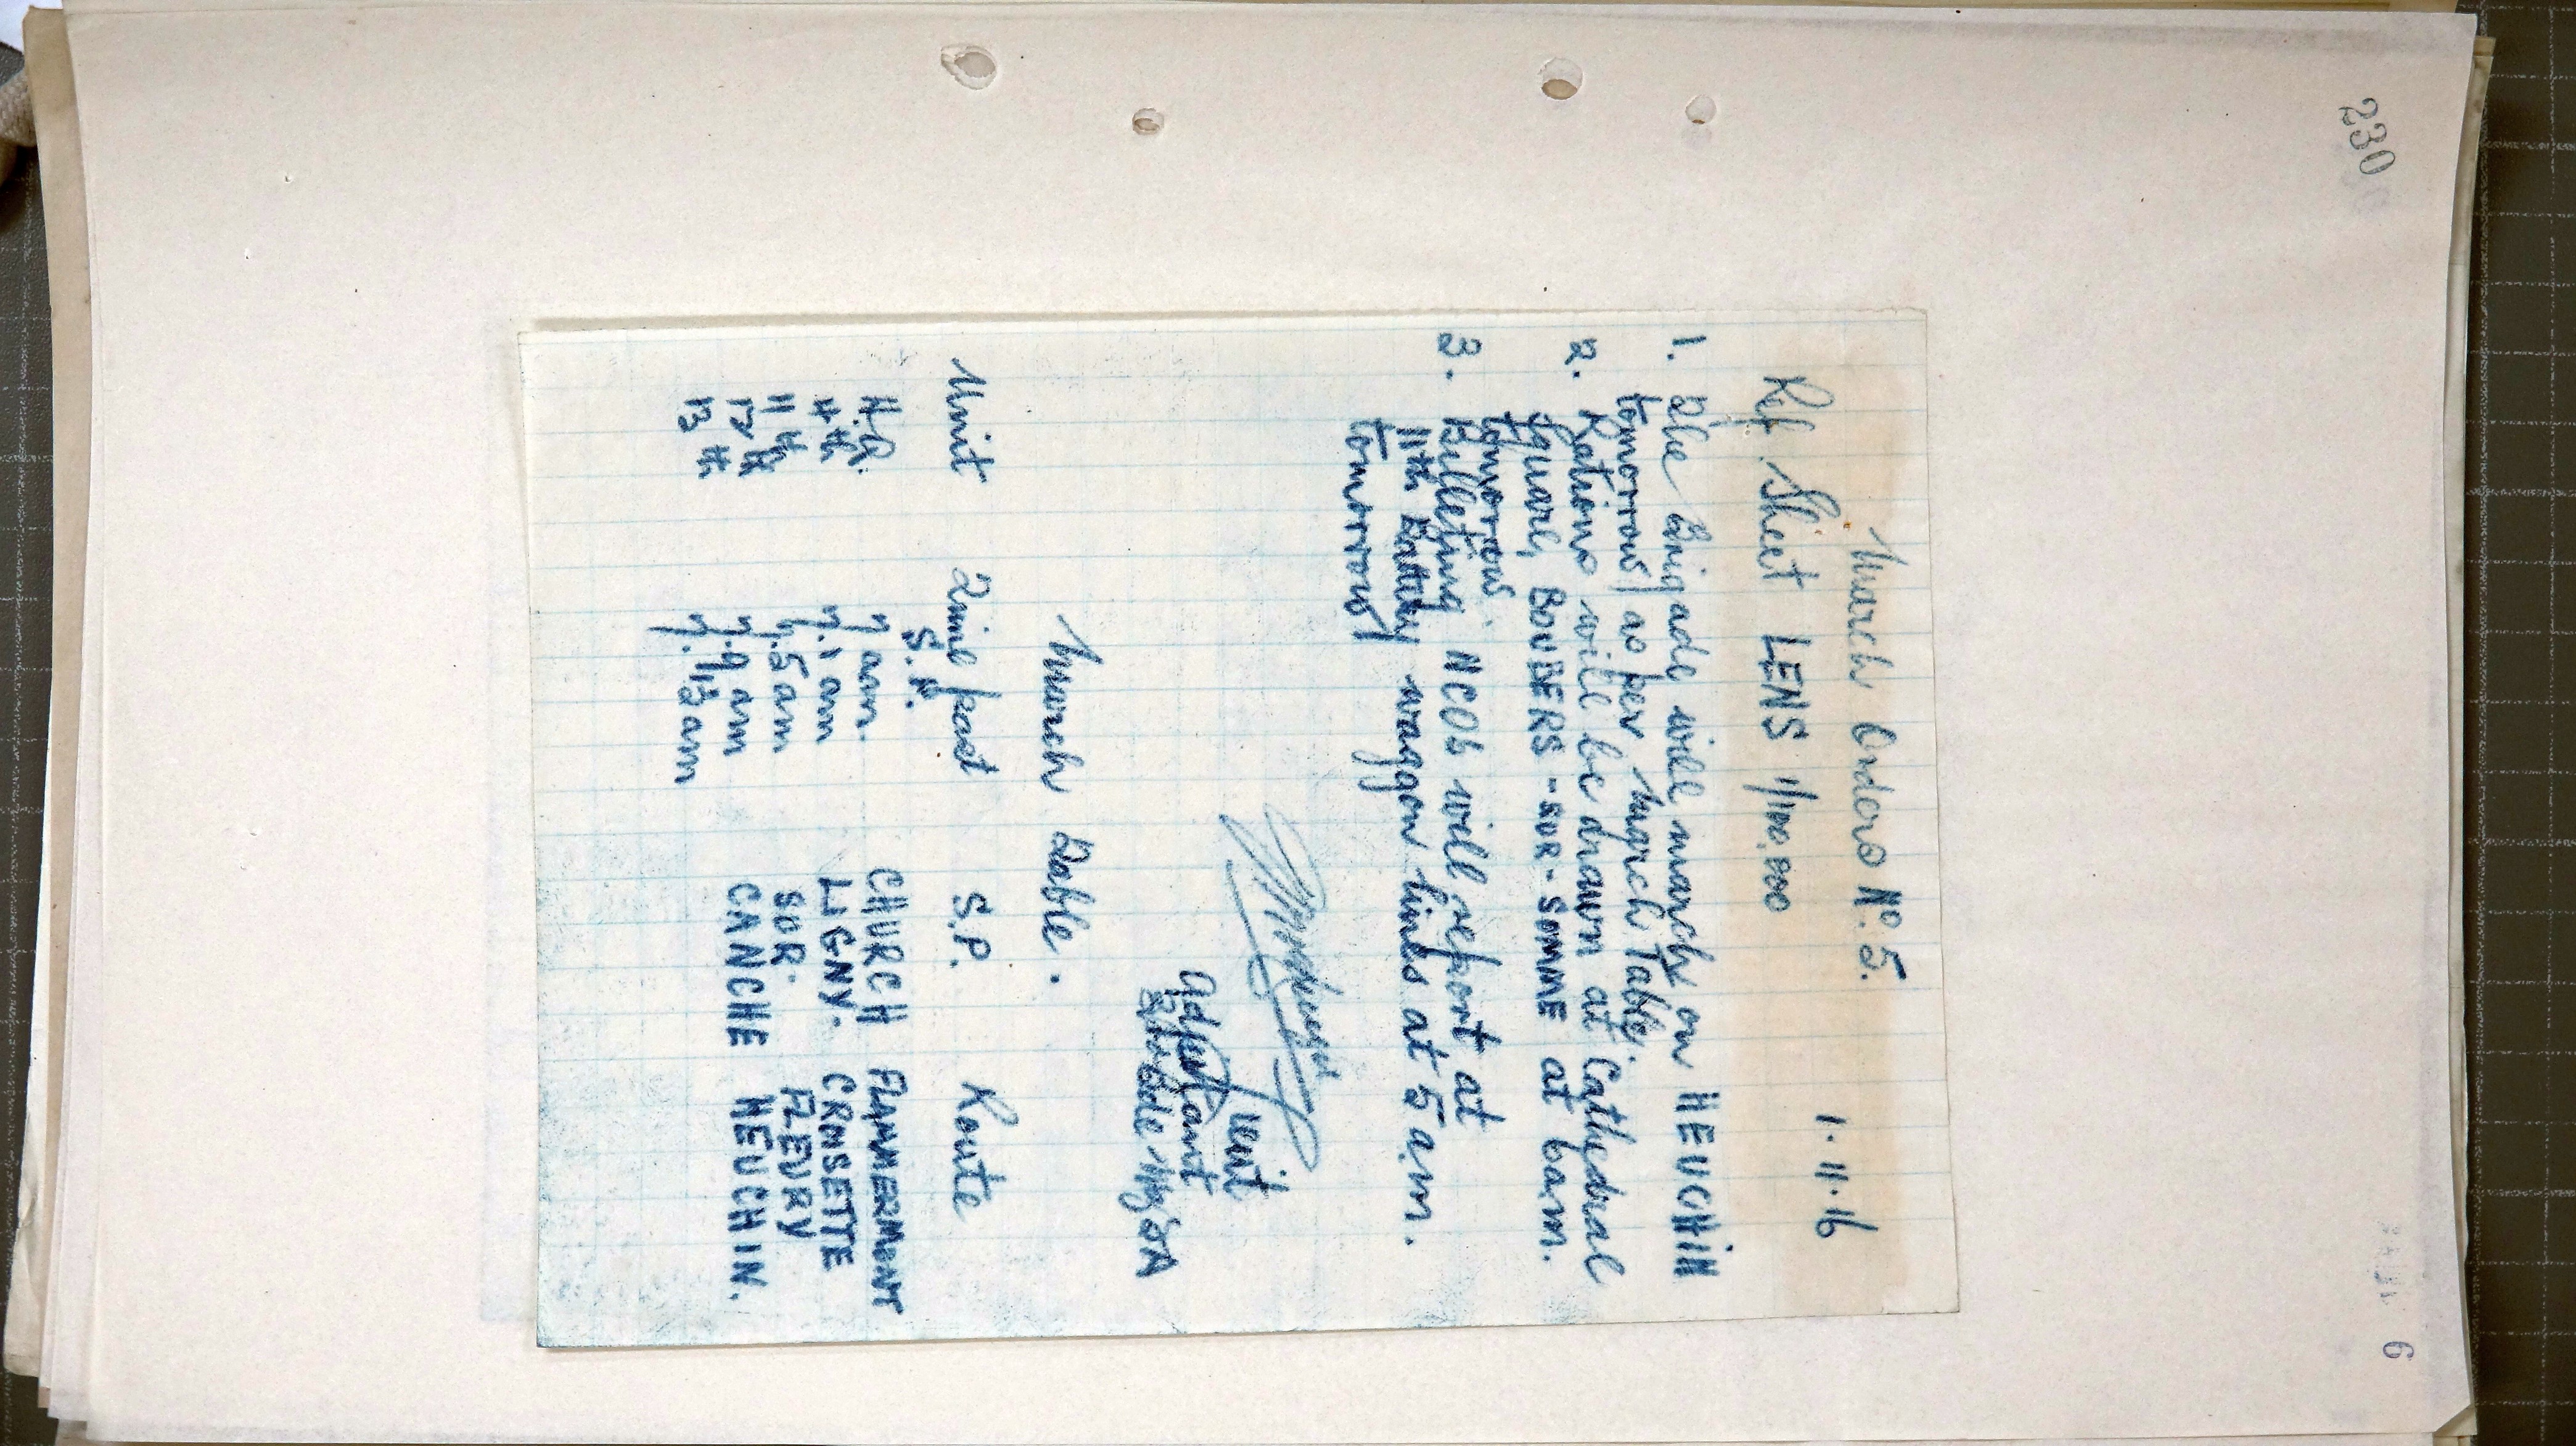 230
March Orders No. 5.
1.11.16
Ref. Sheet LENS 1/100,000
1. The Brigade will march on HEUCHIN
tomorrow as per March Table.
2. Rations will be drawn at Cathedral
square, BOUBERS-SUR-SOMME at 6 a.m.
tomorrow.
3. Billeting NCOs will report at
11th Battery waggon lines at 5 a.m.
tomorrow
Lieut
Adjutant
Brigade
March Table.
Unit Time past S.P. Route
H.Q. 7 am. CHURCH FLAMMERMONT
7.1 am LIGNY. CROISETTE
11th 7.5 am SUR. FLEURY
12th 7.9 am CANCHE HEUCHIN.
13th 7.13 am
6